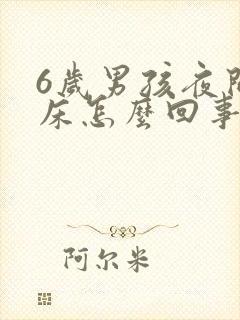 6歲男孩夜間
床怎麼回事
阿尔米